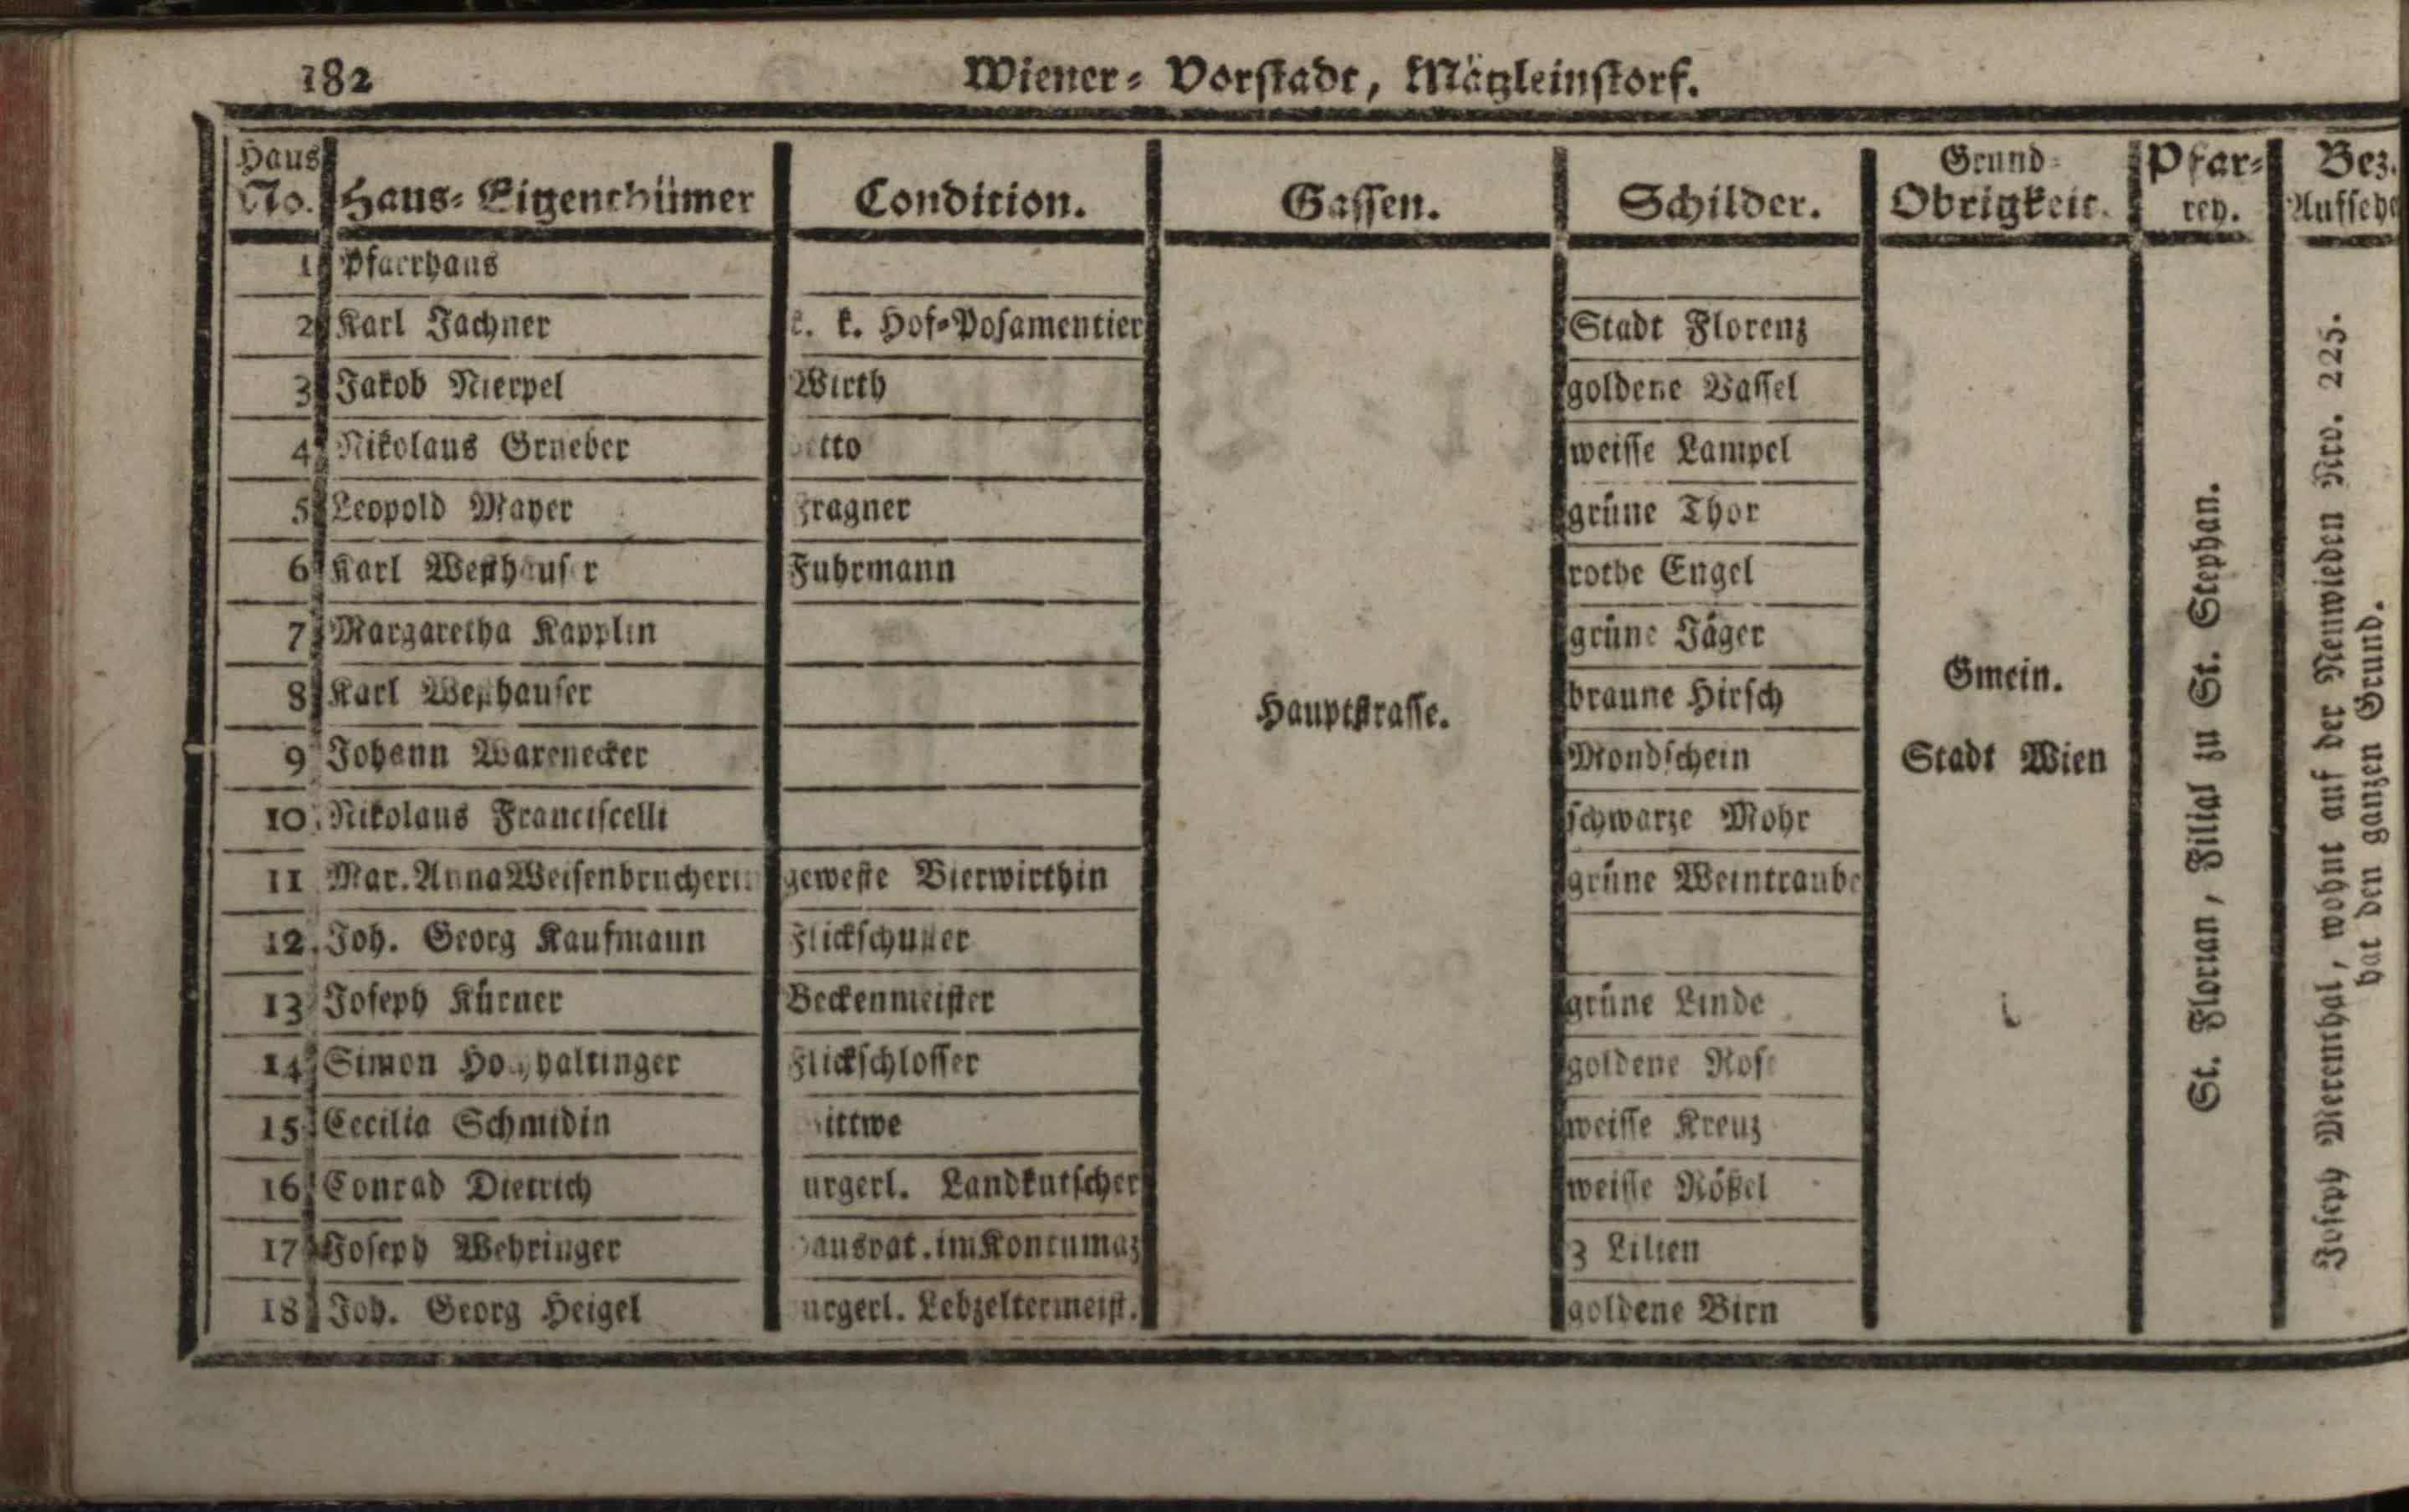 182 Wiener-Vorstadt, Mätzleinstorf.
Haus No. Haus-Eigenthümer Condition. Gassen. Schilder. Grund-Obrigkeit. Pfar-rey. Bez. Aufsehe
1 Pfarrhaus
2 Karl Jachner k. k. Hof-Posamentier Stadt Florenz
3 Jakob Nierpel Wirth goldene Vassel
4 Nikolaus Grueber detto weisse Lampel
5 Leopold Mayer Fragner grüne Thor
6 Karl Fuhrmann rothe Engel
7 Margaretha Kapplin grüne Jäger
8 Karl braune Hirsch
9 Johann Warenecker Mondschein
10 Nikolaus Franciscelli schwarze Mohr
11 Mar. Anna Weisenbrucherin geweste Bierwirthin grüne Weintraube
12 Joh. Georg Kaufmann
13 Joseph Kürner Beckenmeister grüne Linde
14 Simon Flickschlosser goldene Rose
15 Cecilia Schmidin Wittwe weisse Kreuz
16 Conrad Dietrich burgerl. Landkutscher weisse Rößel
17 Joseph Wehringer Hausvat. im Kontumaz 3 Lilien
18 Joh. Georg Heigel burgerl. Lebzeltermeist. goldene Birn
Hauptstrasse.
Gmein.
Stadt Wien
St. Florian, Filial zu St. Stephan.
Joseph Merenthal, wohnt auf der Neuwieden Nro. 225.
hat den ganzen Grund.